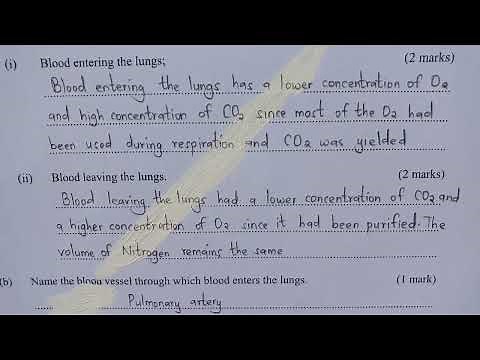 (i) Blood entering the lungs; (2 marks)
Blood entering the lungs has a lower concentration of O₂
and high concentration of CO₂ since most of the O₂ had
been used during respiration and CO₂ was yielded
(ii) Blood leaving the lungs. (2 marks)
Blood leaving the lungs had a lower concentration of CO₂ and
a higher concentration of O₂ since it had been purified. The
volume of Nitrogen remains the same
(b) Name the blood vessel through which blood enters the lungs. (1 mark)
Pulmonary artery